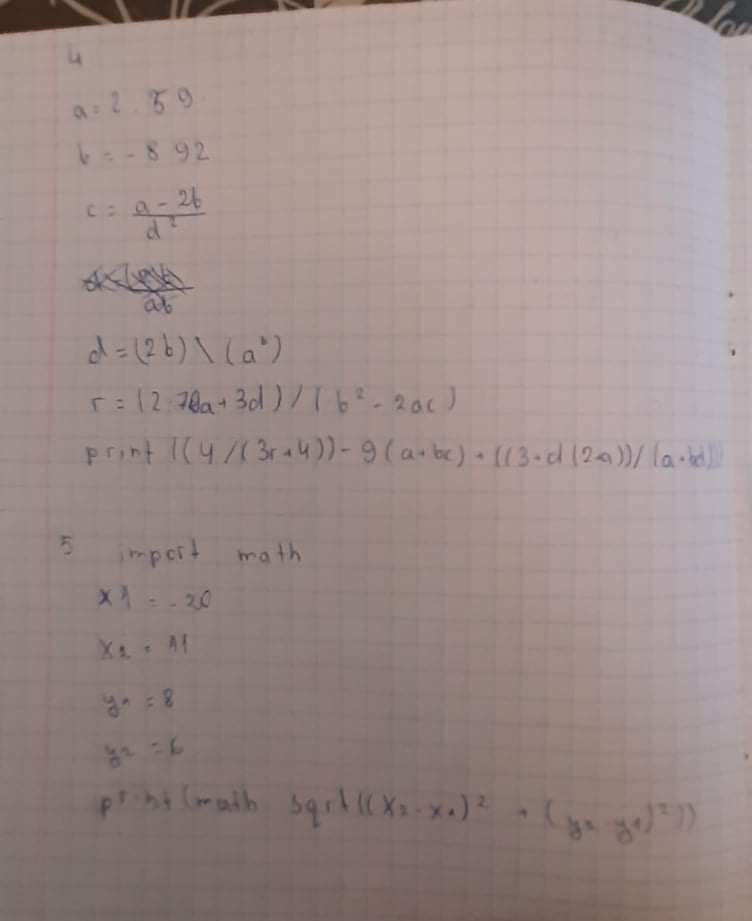 4
a = 2.59
b = -8.92
c = a - 2b / d²
ab
d = (2b) \ (a²)
r = (2.78a + 3d) / (b² - 2ac)
print ((4 / (3r + 4)) - 9 (a + bc) + ((3 + d (2+a)) / (a + bd)
5 import math
x1 = -20
x2 = 11
y1 = 8
y2 = 6
print (math sqrt((x2 - x1)² + (y2 y1)²))